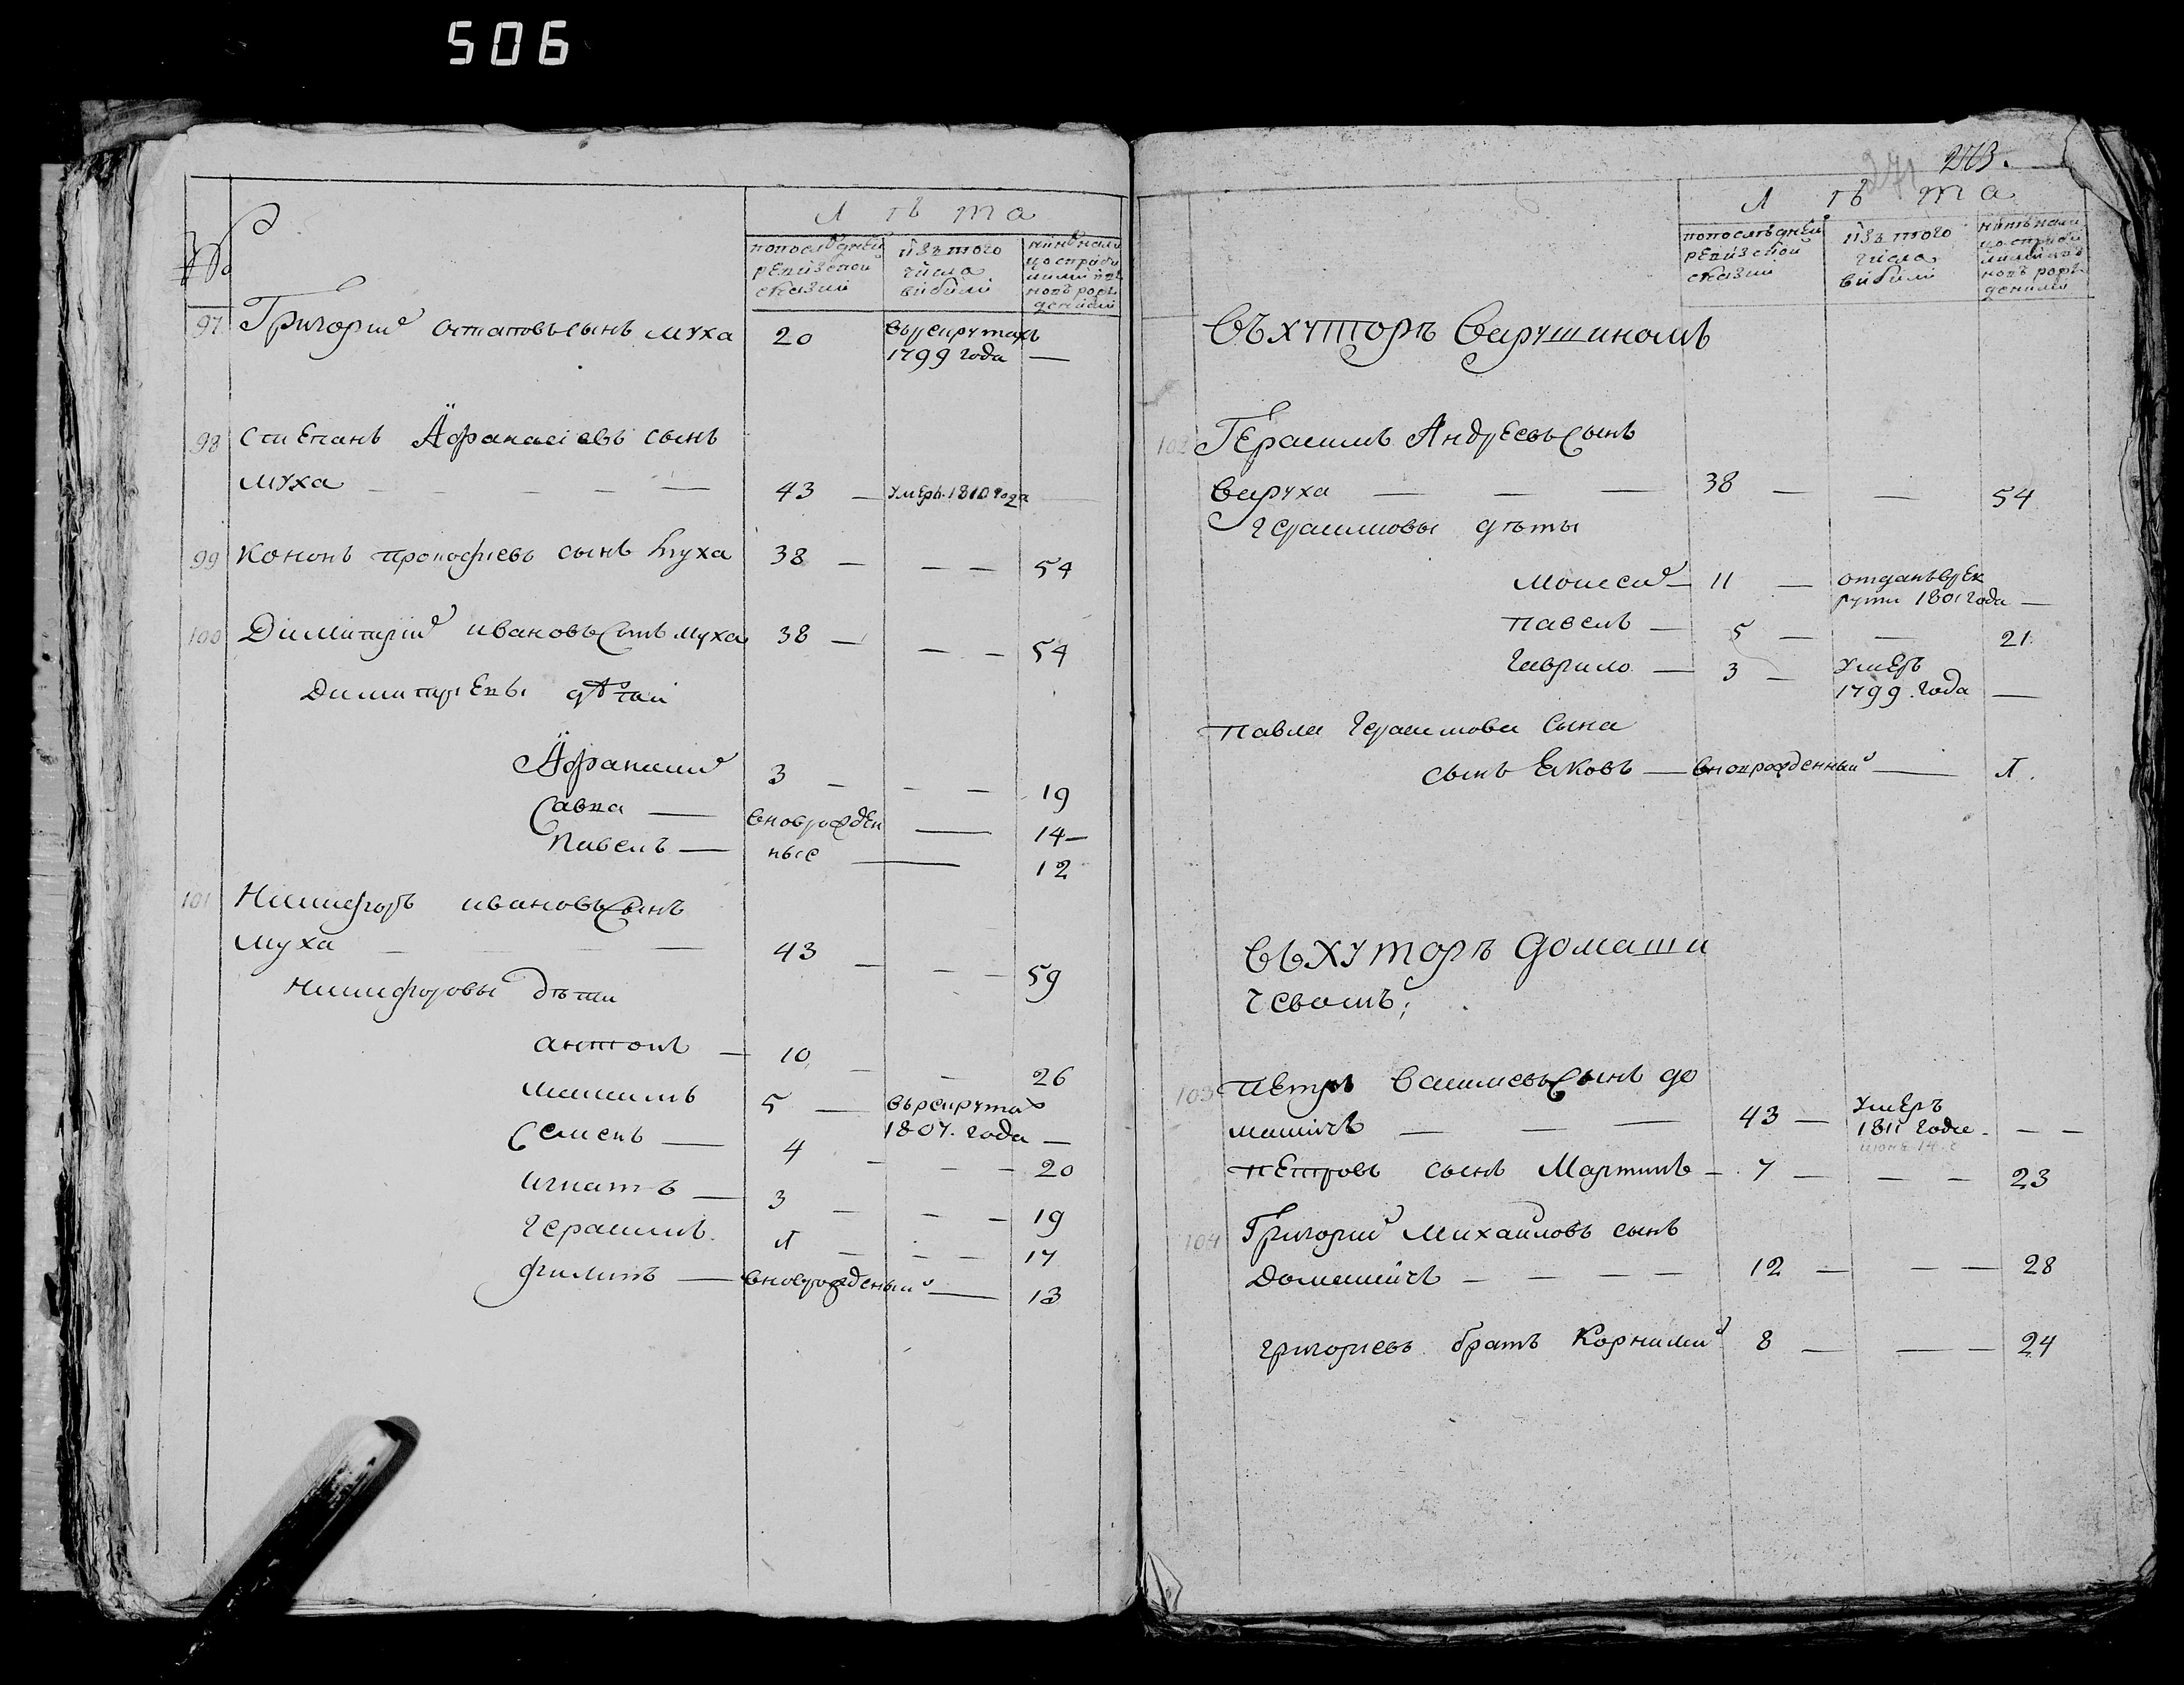 506
Лѣта
№
попослѣдней
ревизской
сказки
изъ того
числа
выбыли
97 Григорий остаповъ сынъ муха 20 въ рекрутахъ
1799 года —
98 степанъ Афанасіевъ сынъ
муха — — — 43 — умеръ 1810 года —
99 Кононъ прокофіевъ сынъ муха 38 — — — 54
100 Димитрій ивановъ сынъ муха 38 — — — 54
Димитріевы дѣтьи
Афанасий 3 — — — 19
Савка — вноврожден — 14 —
Павелъ — ные — 12
101 Никифоръ ивановъ сынъ
муха — — — 43 — — — 59
Никифоровы дѣти
антонъ — 10 — — 26
максимъ 5 — въ рекрутах
1807. года —
Семенъ — 4 — — — 20
игнатъ — 3 — — — 19
герасимъ 1 — — — 17
филипъ — вноврожденый — 13
273.
271
Лѣта
попослѣдней
ревизской
сказки
изъ того
числа
выбыли
въ хуторѣ варушиномъ
102 Герасимъ Андреевъ сынъ
варуха — — — 38 — — 54
герасимовы дѣты
Моисей — 11 — отданъ врек
руты 1801 года —
павелъ — 5 — — 21
гаврило — 3 — умеръ
1799. года —
павла герасимова сына
сынъ Яковъ — вноврожденный — 1.
въ хуторѣ домаши
чевомъ;
103 петръ василіевъ сынъ до
машичъ — — — 43 — умеръ
1811 года — — —
петровъ сынъ Мартинъ — 7 — — — 23
104 Григорий Михаиловъ сынъ
Домашичъ — — — — 12 — — — 28
григориевъ братъ Корнилий 8 — — — 24